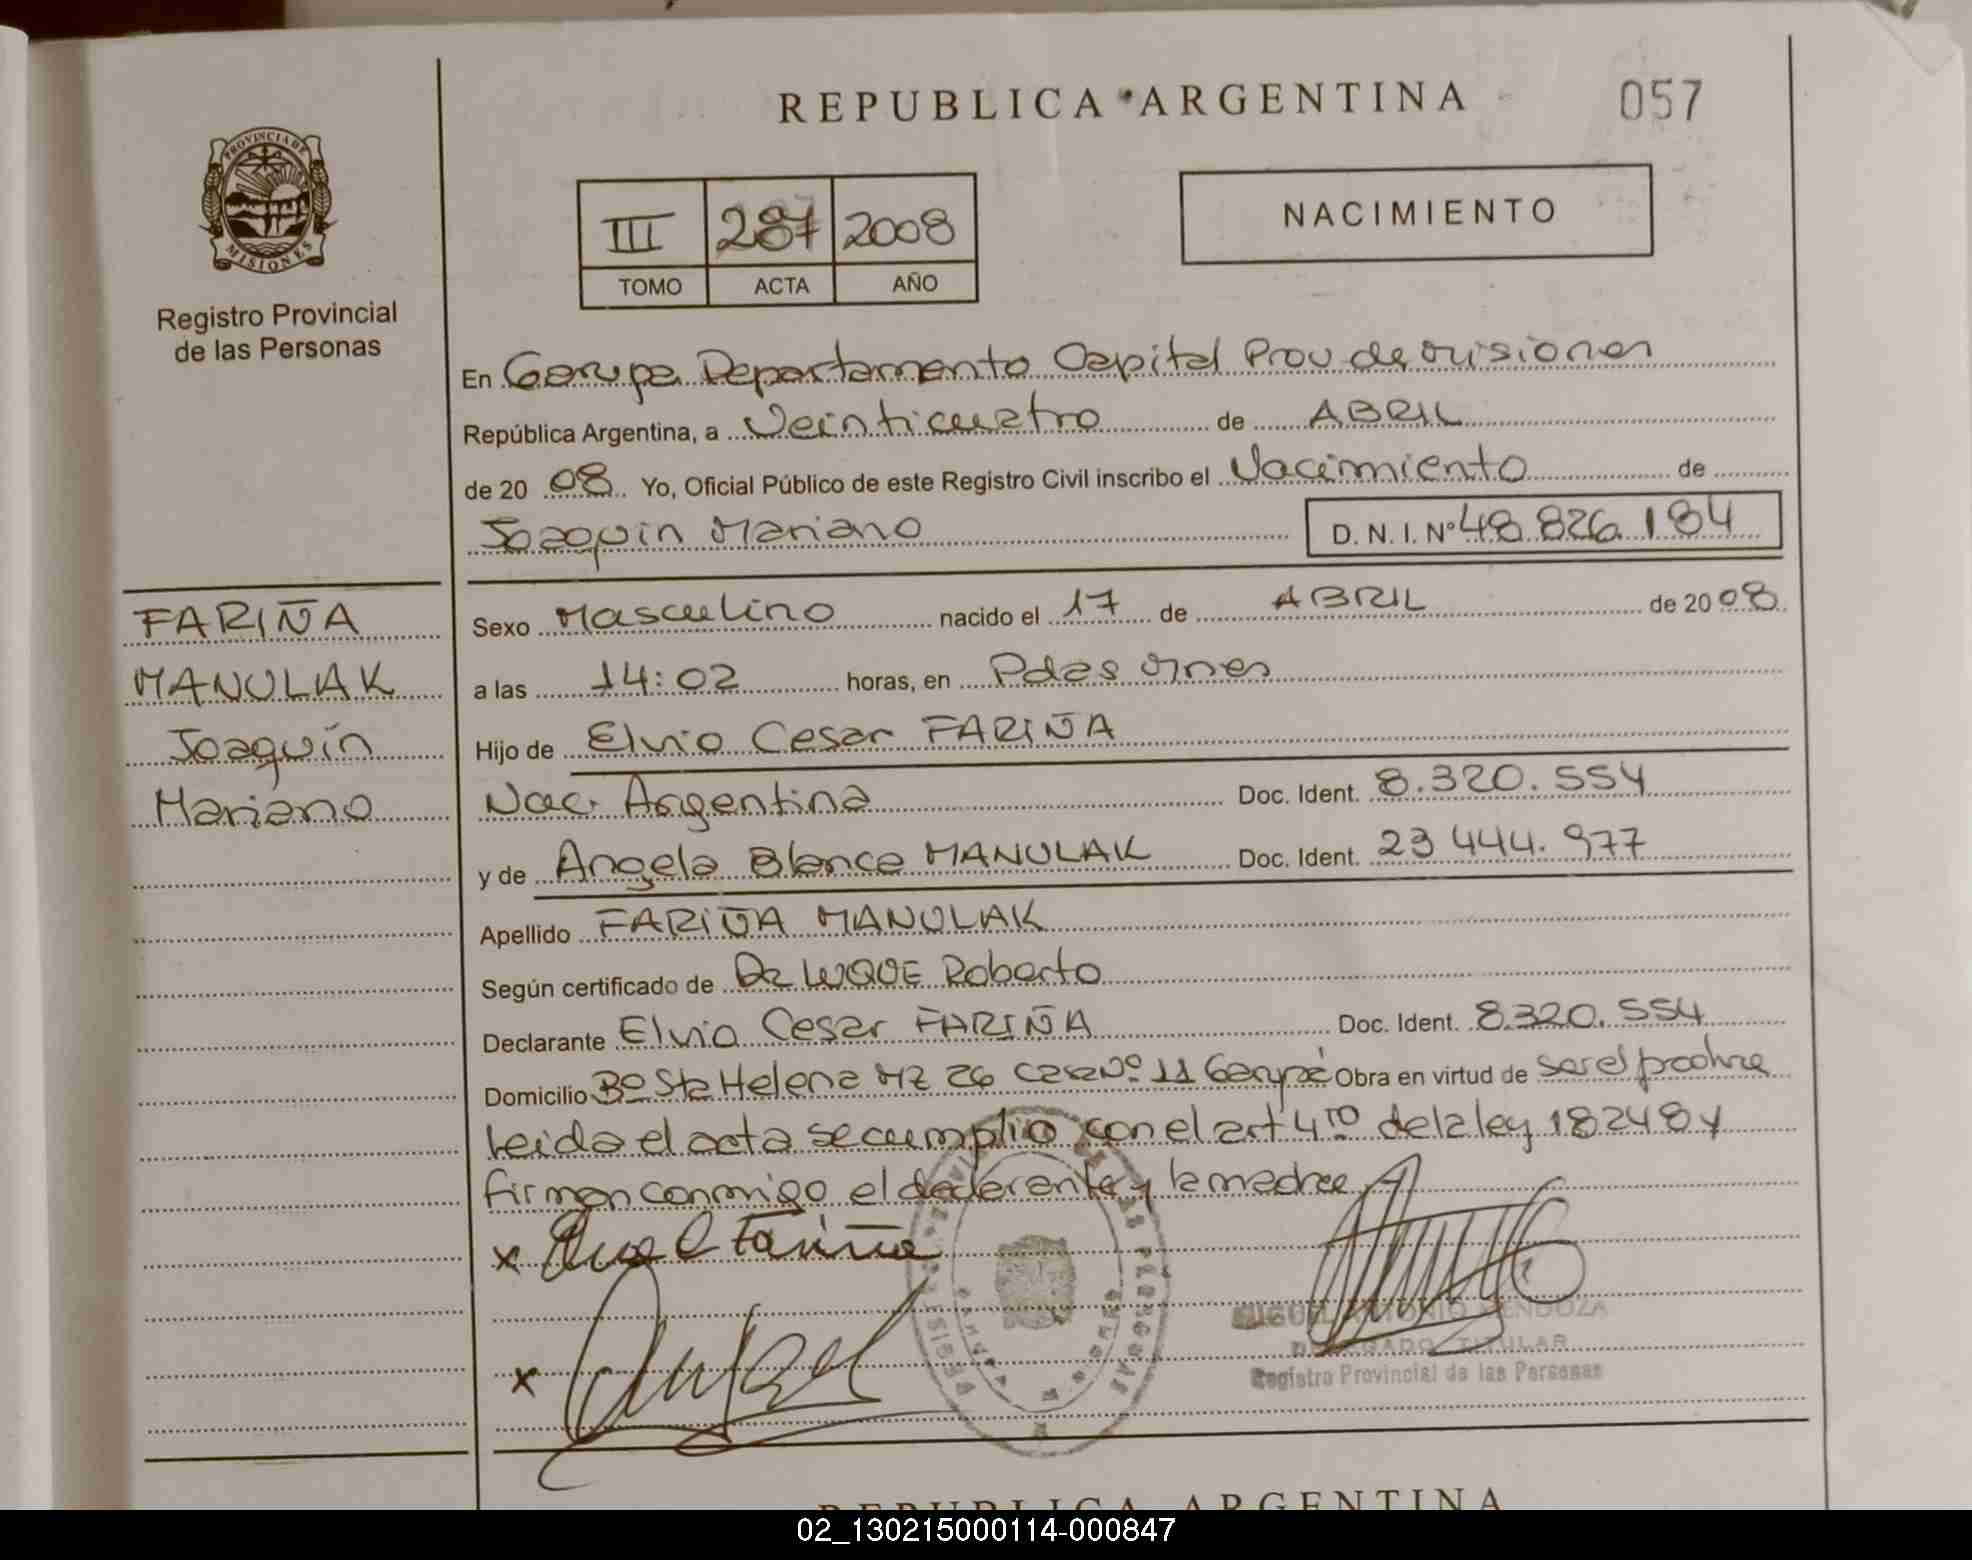 REPUBLICA ARGENTINA
057
PROVINCIA DE
MISIONES
Registro Provincial
de las Personas
III 287 2008
TOMO ACTA AÑO
NACIMIENTO
En Garupa Departamento Capital Prov de Misiones
República Argentina, a Veinticuatro de ABRIL
de 20 08 Yo, Oficial Público de este Registro Civil inscribo el Nacimiento de
Joaquin Mariano D. N. I. Nº 48.826.184
FARIÑA
MANULAK
Joaquín
Mariano
Sexo Masculino nacido el 17 de ABRIL de 20 08
a las 14:02 horas, en Pdas Mnes
Hijo de Elvio Cesar FARIÑA
Nac. Argentina Doc. Ident. 8.320.554
y de Angela Blanca MANULAK Doc. Ident. 23 444.977
Apellido FARIÑA MANULAK
Según certificado de Dr LUQUE Roberto
Declarante Elvio Cesar FARIÑA Doc. Ident. 8.320.554
Domicilio Bº Sta Helena MZ 26 Casa Nº 11 Garupá Obra en virtud de ser el padre
Leida el acta se cumplio con el art 4ro de la ley 18248 y
firman conmigo el declarante y la madre
x Elvio C Fariña
x
MIGUEL ANTONIO MENDOZA
DELEGADO TITULAR
Registro Provincial de las Personas
REPUBLICA ARGENTINA
02_130215000114-000847